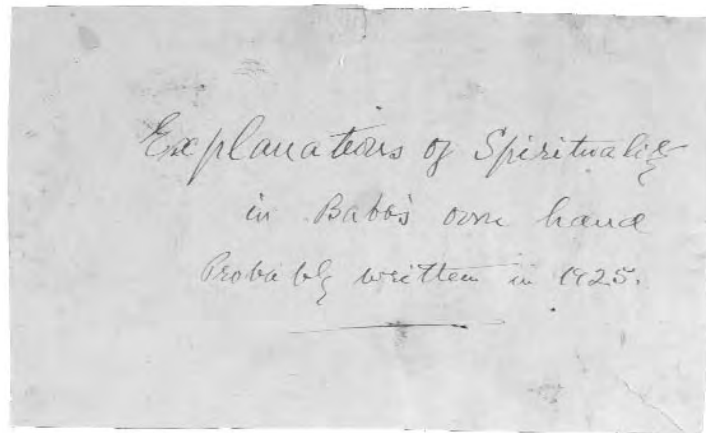 Explanations of Spirituality
in Baba's own hand
Probably written in 1925.